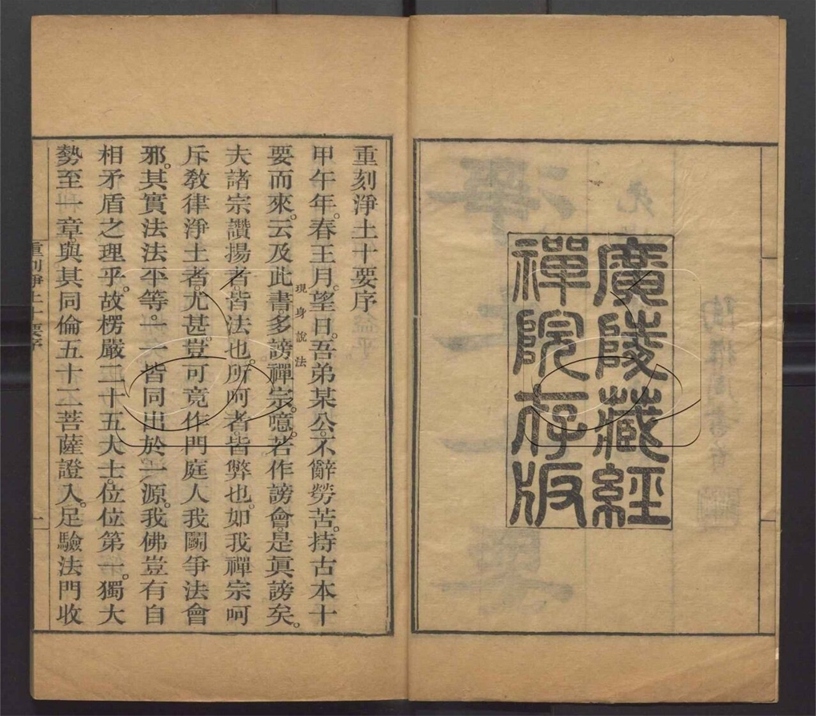 廣陵藏經
禪院存版
重刻淨土十要序
甲午年。春王月。望日。吾弟某公。不辭勞苦。持古本十
要而來。云及此書多謗禪宗。噫。若作謗會。是眞謗矣。
現身說法
夫諸宗讚揚者皆法也。所呵者皆弊也。如我禪宗呵
斥敎律淨土者尤甚。豈可竟作門庭人我鬬爭法會
邪。其實法法平等。一一皆同出於一源。我佛豈有自
相矛盾之理乎。故楞嚴二十五大士。位位第一。獨大
勢至一章。與其同倫五十二菩薩證入。足驗法門收
重刻淨土十要序
一